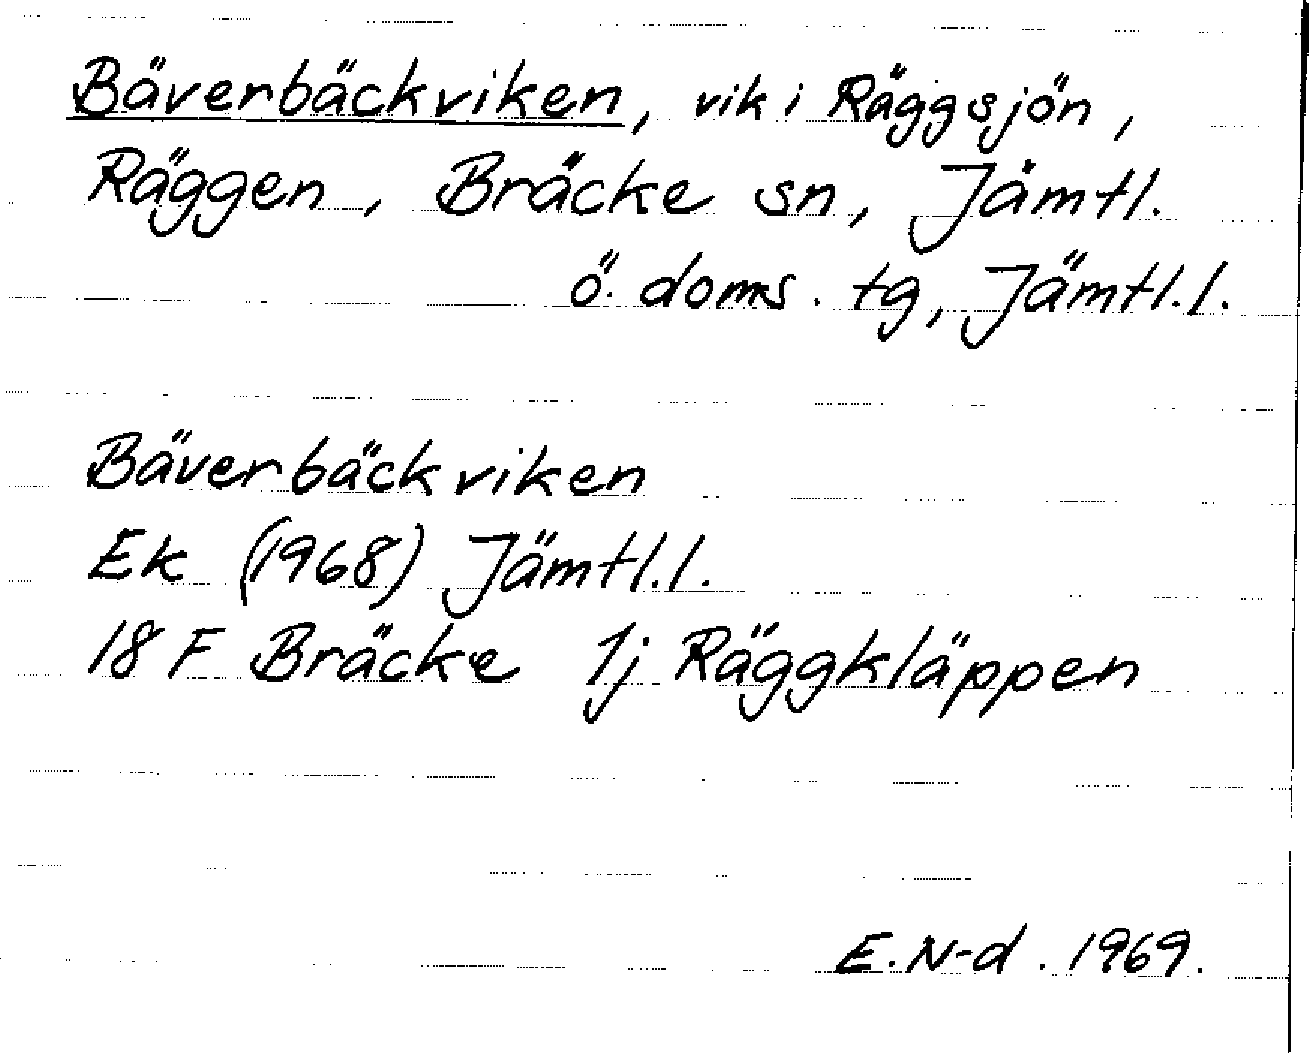 Bäverbäckviken, vik i Räggsjön,
Räggen, Bräcke sn, Jämtl.
ö. doms. tg, Jämtl.l.
Bäverbäckviken
Ek (1968) Jämtl.l.
18 F Bräcke 1j Räggkläppen
E. N-d. 1969.